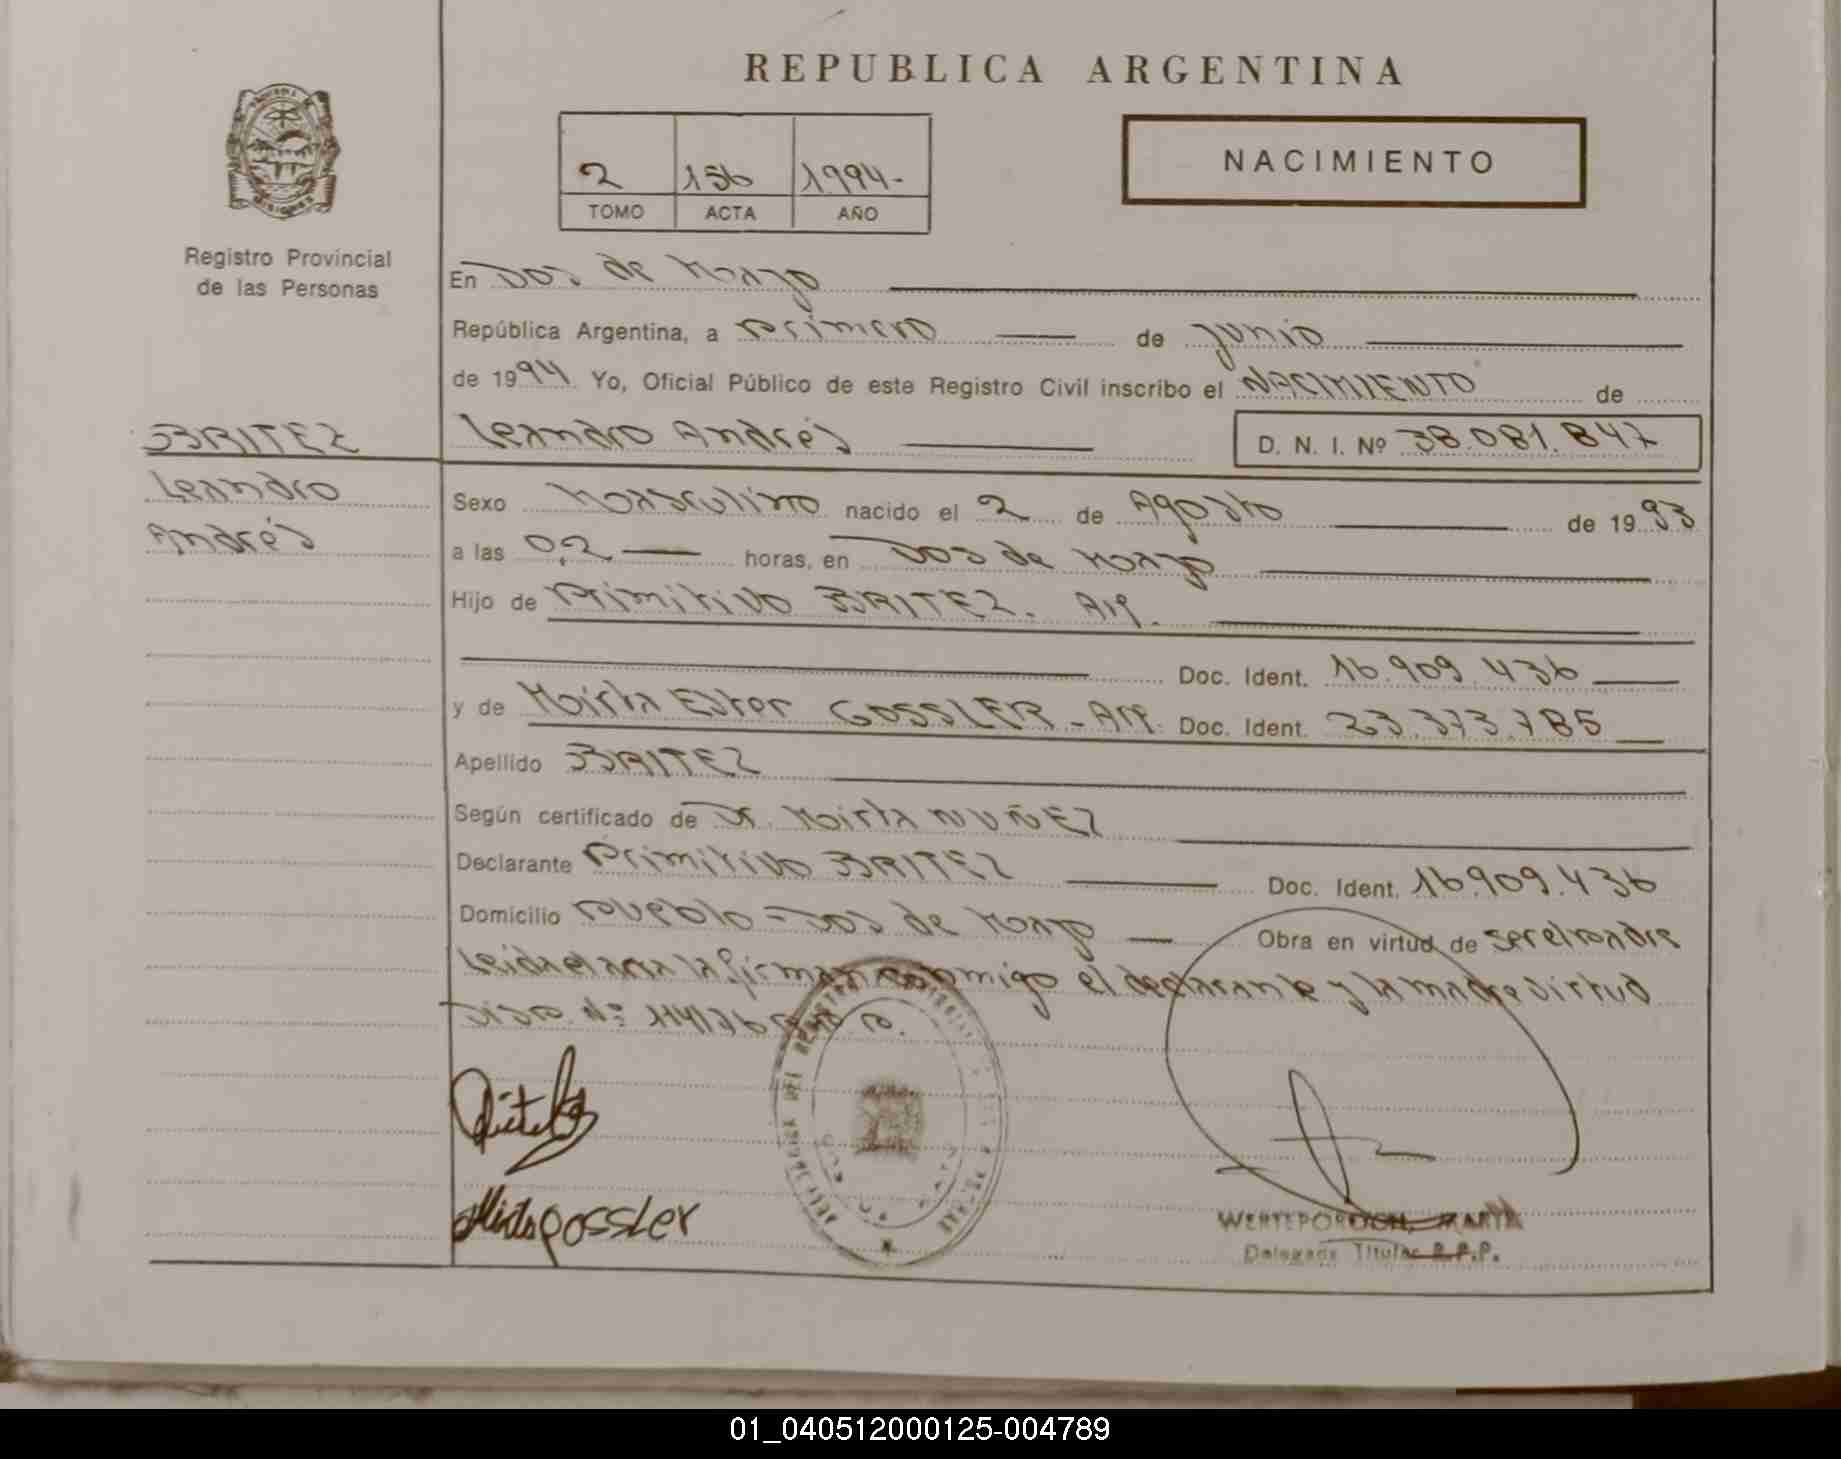 REPUBLICA ARGENTINA
2 156 1994-
TOMO ACTA AÑO
NACIMIENTO
Registro Provincial
de las Personas
En Dos de Mayo
República Argentina, a primero de junio
de 1994 Yo, Oficial Público de este Registro Civil inscribo el NACIMIENTO de
BRITEZ
Leandro
Andrés
Leandro Andrés D. N. I. Nº 38.081.847
Sexo Masculino nacido el 2 de Agosto de 1993
a las 02 horas, en Dos de Mayo
Hijo de Primitivo BRITEZ. Arg.
Doc. Ident. 16.909.436
y de Mirta Ester GOSSLER - Arg. Doc. Ident. 23.373.785
Apellido BRITEZ
Según certificado de Dr. Mirta NUÑEZ
Declarante Primitivo BRITEZ Doc. Ident. 16.909.436
Domicilio Pueblo - Dos de Mayo Obra en virtud de ser el padre
Leida el acta la firman conmigo el declarante y la madre virtud
Disp. Nº 114/76
Mirta Gossler
MARTA
Delegada Titular R.P.P.
01_040512000125-004789